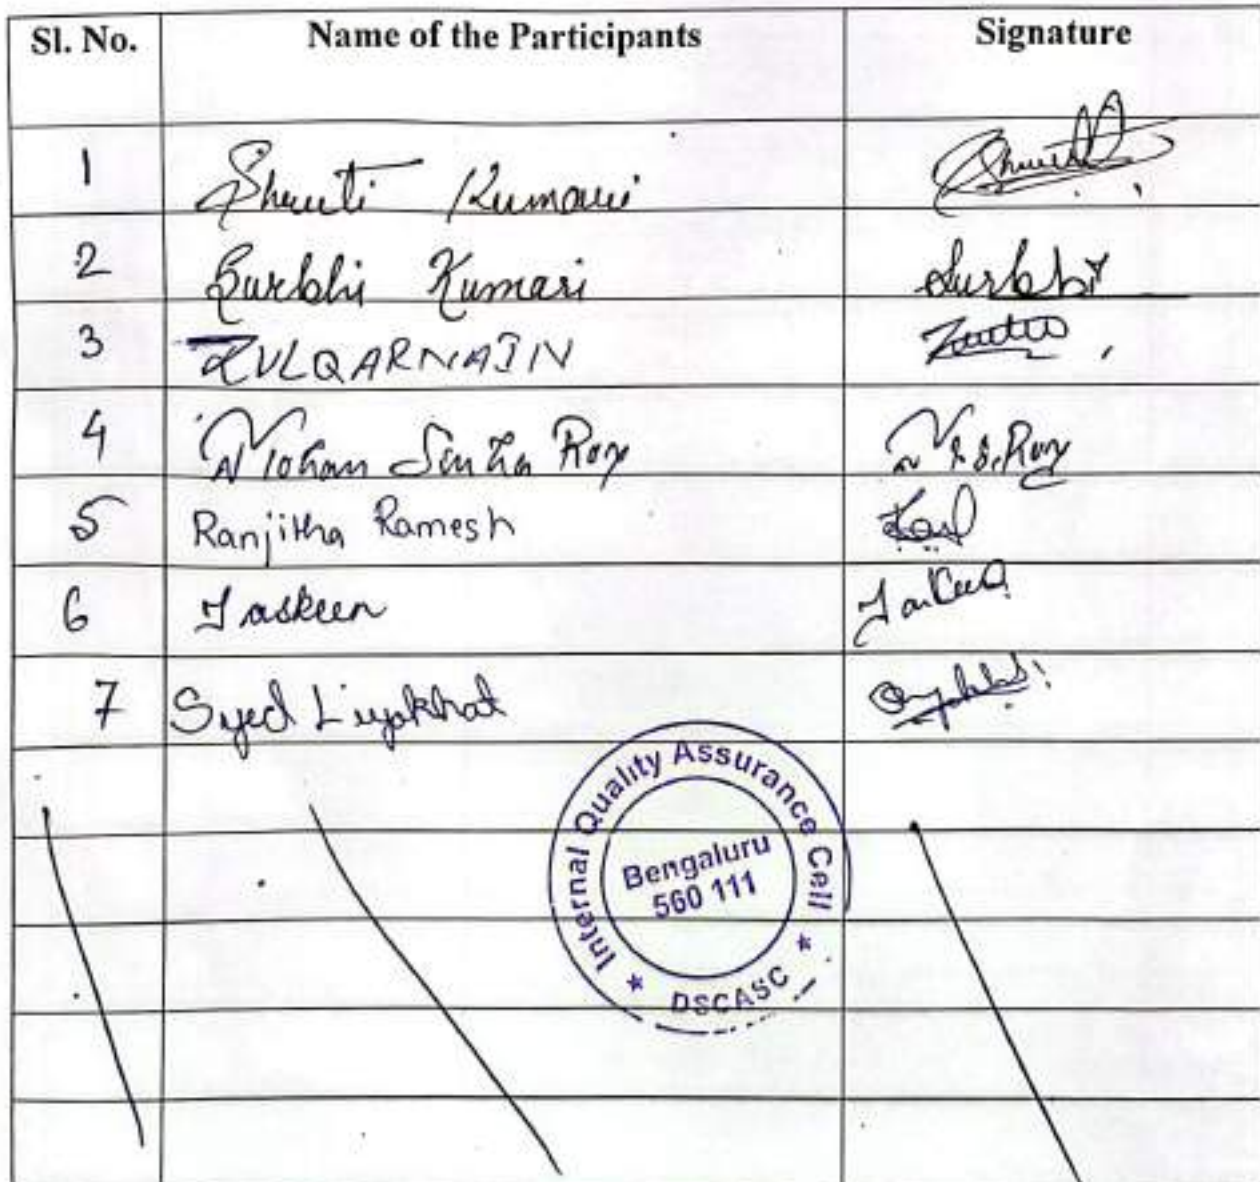 Sl. No. Name of the Participants Signature
1 Shruti Kumari
2 Surbhi Kumari Surbhi
3 ZULQARNAIN
4 Mohan Sinha Roy Roy
5 Ranjitha Ramesh
6 Taskeen Taskeen
7 Syed Liyakhat
Internal Quality Assurance Cell
Bengaluru
560 111
* DSCASC *